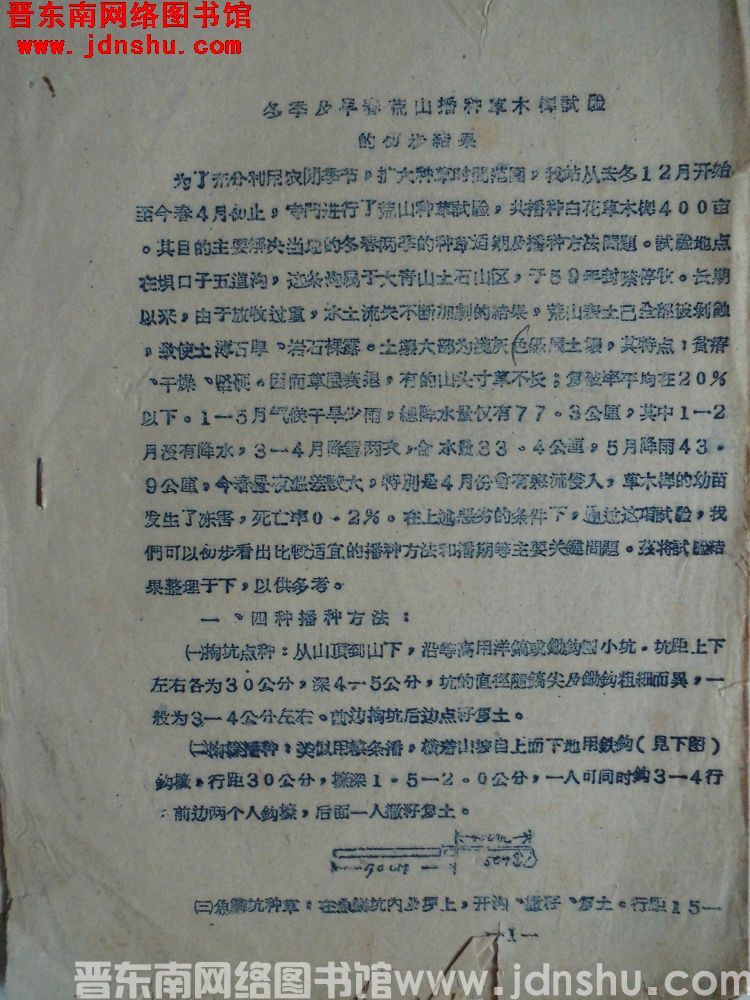 晋东南网络图书馆
www.jdnshu.com
冬季及早春荒山播种草木樨試验
的初步結果
为了充分利用农閑季节，扩大种草时間范囲，我站从去冬12月开始
至今春4月初止，专門进行了荒山种草試验，共播种白花草木樨400亩
。其目的主要解决当地的冬春两季的种草适期及播种方法問題。試验地点
在坝口子五道沟，这条沟属于大青山土石山区，于59年封禁停牧。长期
以来，由于放牧过重，水土流失不断加劇的結果，荒山表土已全部被剥蝕
，致使土薄石厚、岩石裸露。土壤大部为浅灰色栗鈣土壤，其特点：貧瘠
、干燥、坚硬。因而草层衰退，有的山头寸草不长；复被率平均在20%
以下。1—5月气候干旱少雨，总降水量仅有77·3公厘，其中1—2
月沒有降水，3—4月降雪两次，合水量33·4公厘，5月降雨43·
9公厘，今春昼夜温差較大，特别是4月份曾有寒流侵入，草木樨的幼苗
发生了冻害，死亡率0·2%。在上述恶劣的条件下，通过这項試验，我
們可以初步看出比較适宜的播种方法和播期等主要关鍵問題。茲将試验結
果整理于下，以供参考。
一、四种播种方法：
㈠掏坑点种：从山頂到山下，沿等高用洋鎬或鋤鈎刨小坑·坑距上下
左右各为30公分，深4—5公分，坑的直徑随鎬尖及鋤鈎粗細而異，一
般为3—4公分左右。前边掏坑后边点籽复土。
㈡掏壕播种：类似用耧条播，橫着山坡自上而下地用鉄鈎（見下图）
鈎壕，行距30公分，壕深1·5—2·0公分，一人可同时鈎3—4行
前边两个人鈎壕，后面一人撒籽复土。
90cm
㈢魚鱗坑种草：在魚鱗坑內 上，开沟、撒籽、复土。行距15—
—1—
晋东南网络图书馆 www.jdnshu.com